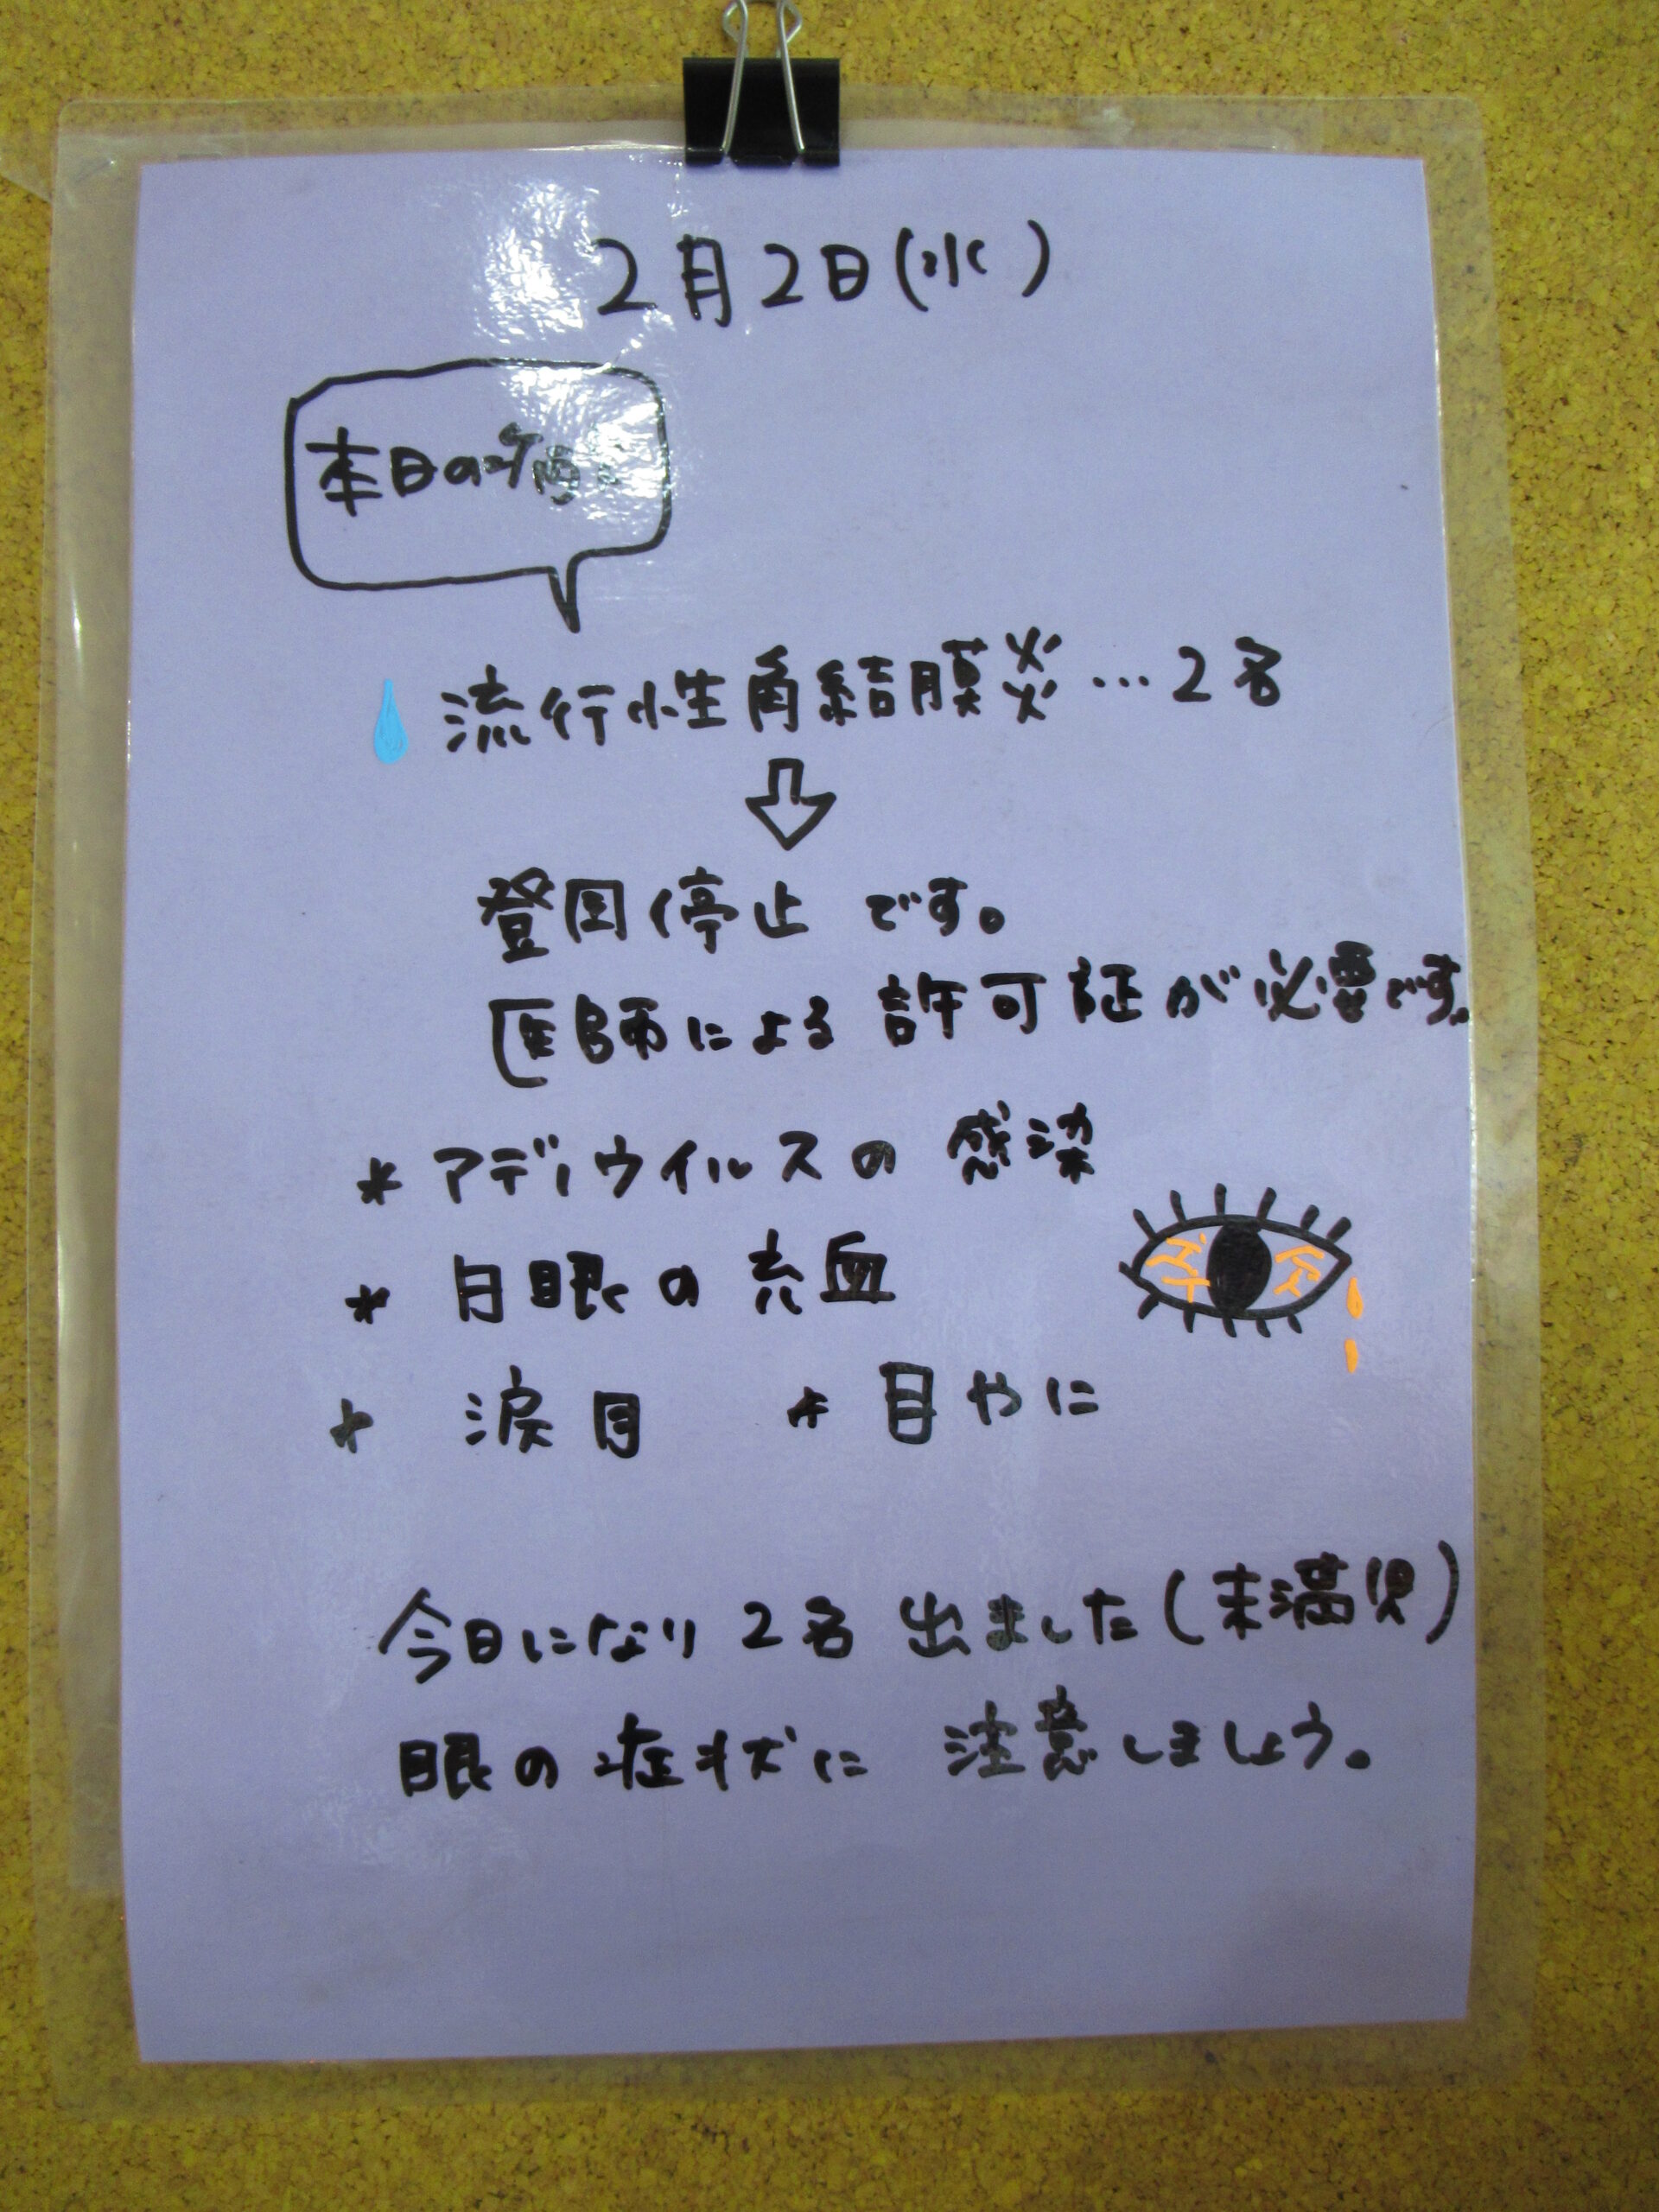 2月2日(水)
本日の病
流行性角結膜炎…2名
登園停止です。
医師による許可証が必要です。
* アデノウイルスの感染
* 白眼の充血
* 涙目 * 目やに
今日になり2名出ました(未満児)
眼の症状に 注意しましょう。